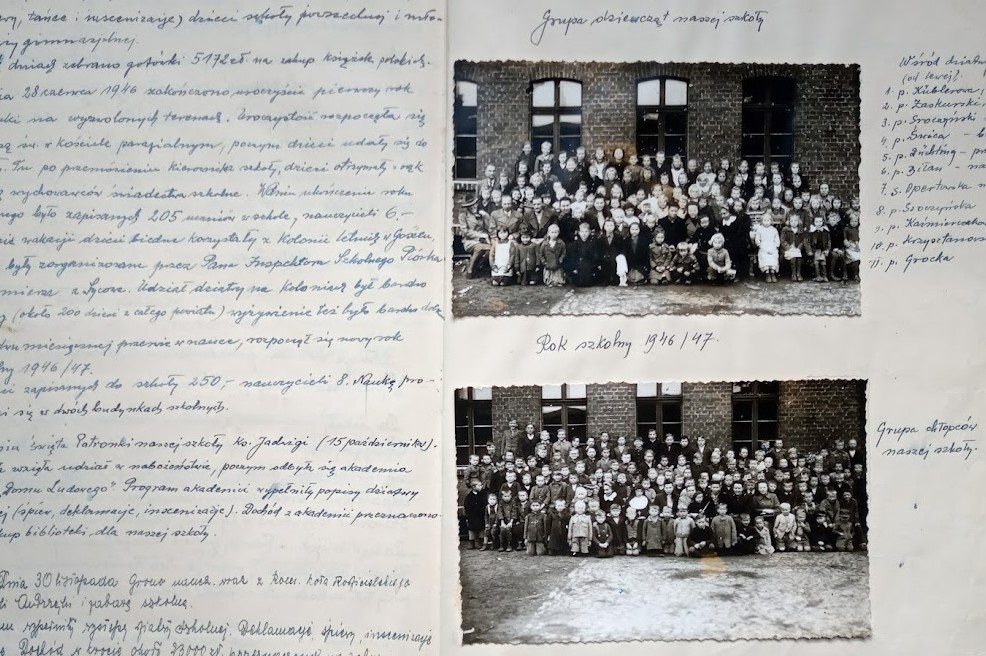 tańce i inscenizacje) dzieci szkoły powszechnej i mło-
gimnazjalnej.
dniach zebrano gotówki 5172 zł. na zakup książek polskich.
28 czerwca 1946 zakończono uroczyście pierwszy rok
na wyzwolonych terenach. Uroczystość rozpoczęła się
św. w kościele parafialnym, poczym dzieci udały się do
Tu po przemówieniu Kierownika szkoły, dzieci otrzymały z rąk
wychowawców świadectwa szkolne. W dniu ukończenia roku
było zapisanych 205 uczniów w szkole, nauczycieli 6.-
wakacji dzieci biedne korzystały z Kolonii letnich w
były zorganizowane przez Pana Inspektora Szkolnego
z Sycowa. Udział dziatwy na Koloniach był bardzo
(około 200 dzieci z całego powiatu) wyżywienie też było bardzo
miesięcznej przerwie w nauce, rozpoczął się nowy rok
1946/47.
zapisanych do szkoły 250,- nauczycieli 8. Naukę pro-
się w dwóch budynkach szkolnych.
święta Patronki naszej szkoły kr. Jadwigi (15 października).
wzięła udział w nabożeństwie, poczym odbyła się akademia
Domu Ludowego" Program akademii wypełniły popisy dziatwy
(śpiew, deklamacje, inscenizacje). Dochód z akademii przeznaczono
biblioteki, dla naszej szkoły.
Dnia 30 listopada Grono naucz. wraz z Kom. Koła Rodzicielskiego
Andrzejki i zabawę szkolną.
wypełniły dziatwy szkolnej. Deklamacje, śpiewy, inscenizacje
Dochód w kwocie około 23000 zł.
Grupa dziewcząt naszej szkoły
Rok szkolny 1946/47.
Wśród
(od lewej)
1. p. Küblerowa,
2. p. Zaskurski,
3. p. Sroczyński
4. p. Świca
5. p.
6. p.
7. s.
8. p. Sroczyńska
9. p.
10. p.
11. p. Grocka
Grupa chłopców
naszej szkoły.